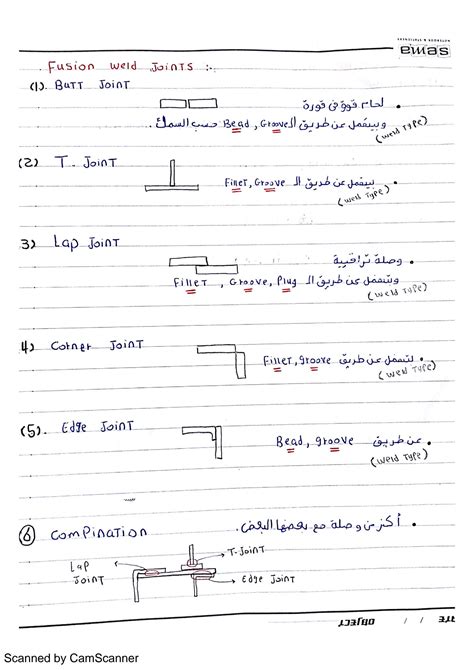 Fusion Weld Joints :.
(1). Butt Joint
• لحام قورة في قورة
وبيتعمل عن طريق الـ Bead, Groove حسب السمك.
(weld Type)
(2) T. Joint
• بيتعمل عن طريق الـ Fillet, Groove
(weld Type)
3) Lap Joint
• وصلة تراقبية
وبتتعمل عن طريق الـ Fillet, Groove, Plug
(weld Type)
4) Corner Joint
• بتتعمل عن طريق Fillet, groove
(weld Type)
(5). Edge Joint
• عن طريق Bead, groove
(weld Type)
6 Compination
• أكثر من وصلة مع بعضها البعض.
T-Joint
Lap Joint
Edge Joint
sema
NOTEBOOK & STATIONERY
OBJECT
Scanned by CamScanner